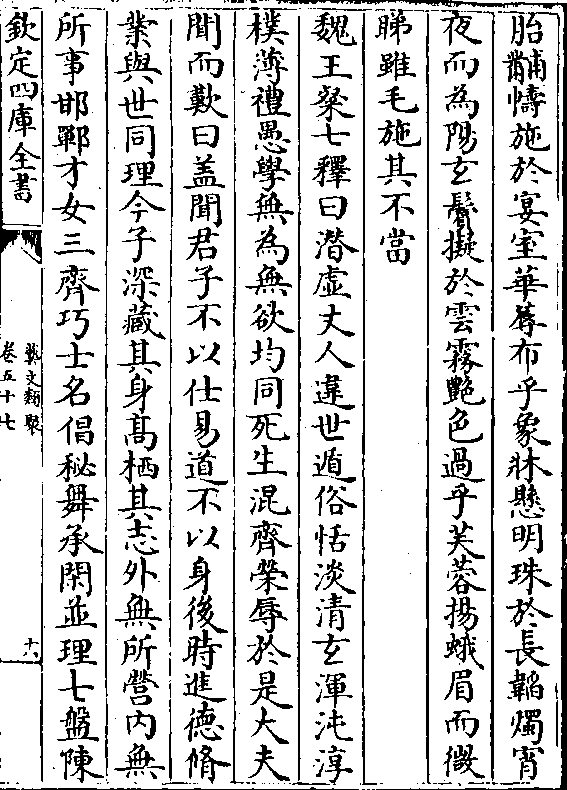 胎黼幬施於宴室華蓐布乎象牀懸明珠於長韜燭宵
夜而為陽玄鬢擬於雲霧艷色過乎芙蓉揚蛾眉而微
睇雖毛施其不當
魏王粲七釋曰潛虛丈人違世遁俗恬淡清玄渾沌淳
樸薄禮愚學無為無欲均同死生混齊榮辱於是大夫
聞而歎曰盖聞君子不以仕易道不以身後時進德脩
業與世同理今子深藏其身髙栖其志外無所營内無
所事邯鄲才女三齊巧士名倡秘舞承閑並理七盤陳
欽定四庫全書
藝文類聚
卷五十七